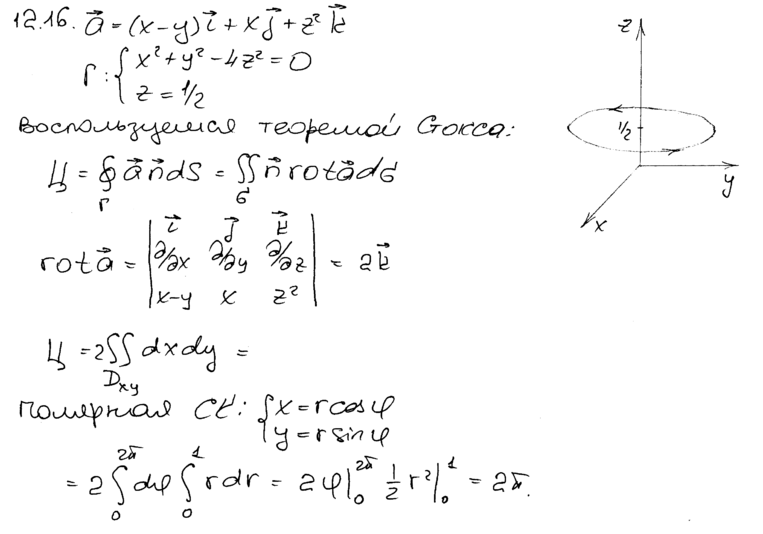 12.16. a⃗ = (x-y)i⃗ + xj⃗ + z² k⃗
Γ: { x² + y² - 4z² = 0
z = 1/2
z
1/2
y
x
Воспользуемся теоремой Стокса:
Ц = ∮_Γ a⃗ n⃗ dS = ∬_σ n⃗ rot a⃗ dσ
rot a⃗ = | i⃗ j⃗ k⃗
∂/∂x ∂/∂y ∂/∂z
x-y x z² | = 2k⃗
Ц = 2∬_{Dxy} dxdy =
полярная СК: { x = r cos φ
y = r sin φ
= 2 ∫₀^{2π} dφ ∫₀^1 r dr = 2φ|₀^{2π} 1/2 r²|₀^1 = 2π.